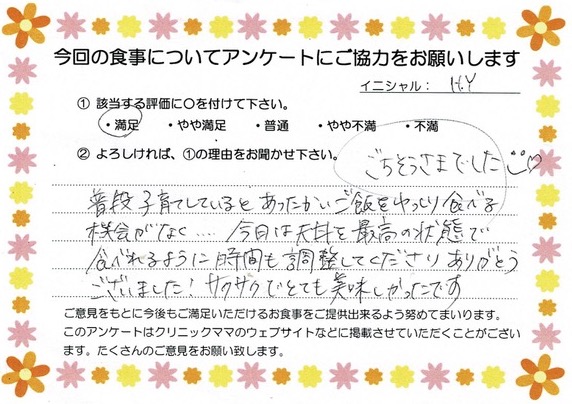 今回の食事についてアンケートにご協力をお願いします
イニシャル： H.Y
① 該当する評価に○を付けて下さい。
・満足 ・やや満足 ・普通 ・やや不満 ・不満
② よろしければ、①の理由をお聞かせ下さい。
ごちそうさまでした
普段子育てしているとあったかいご飯をゆっくり食べる
機会がなく.... 今日は天丼を最高の状態で
食べれるように時間も調整してくださりありがとう
ございました！サクサクでとても美味しかったです
ご意見をもとに今後もご満足いただけるお食事をご提供出来るよう努めてまいります。
このアンケートはクリニックママのウェブサイトなどに掲載させていただくことがござい
ます。たくさんのご意見をお願い致します。